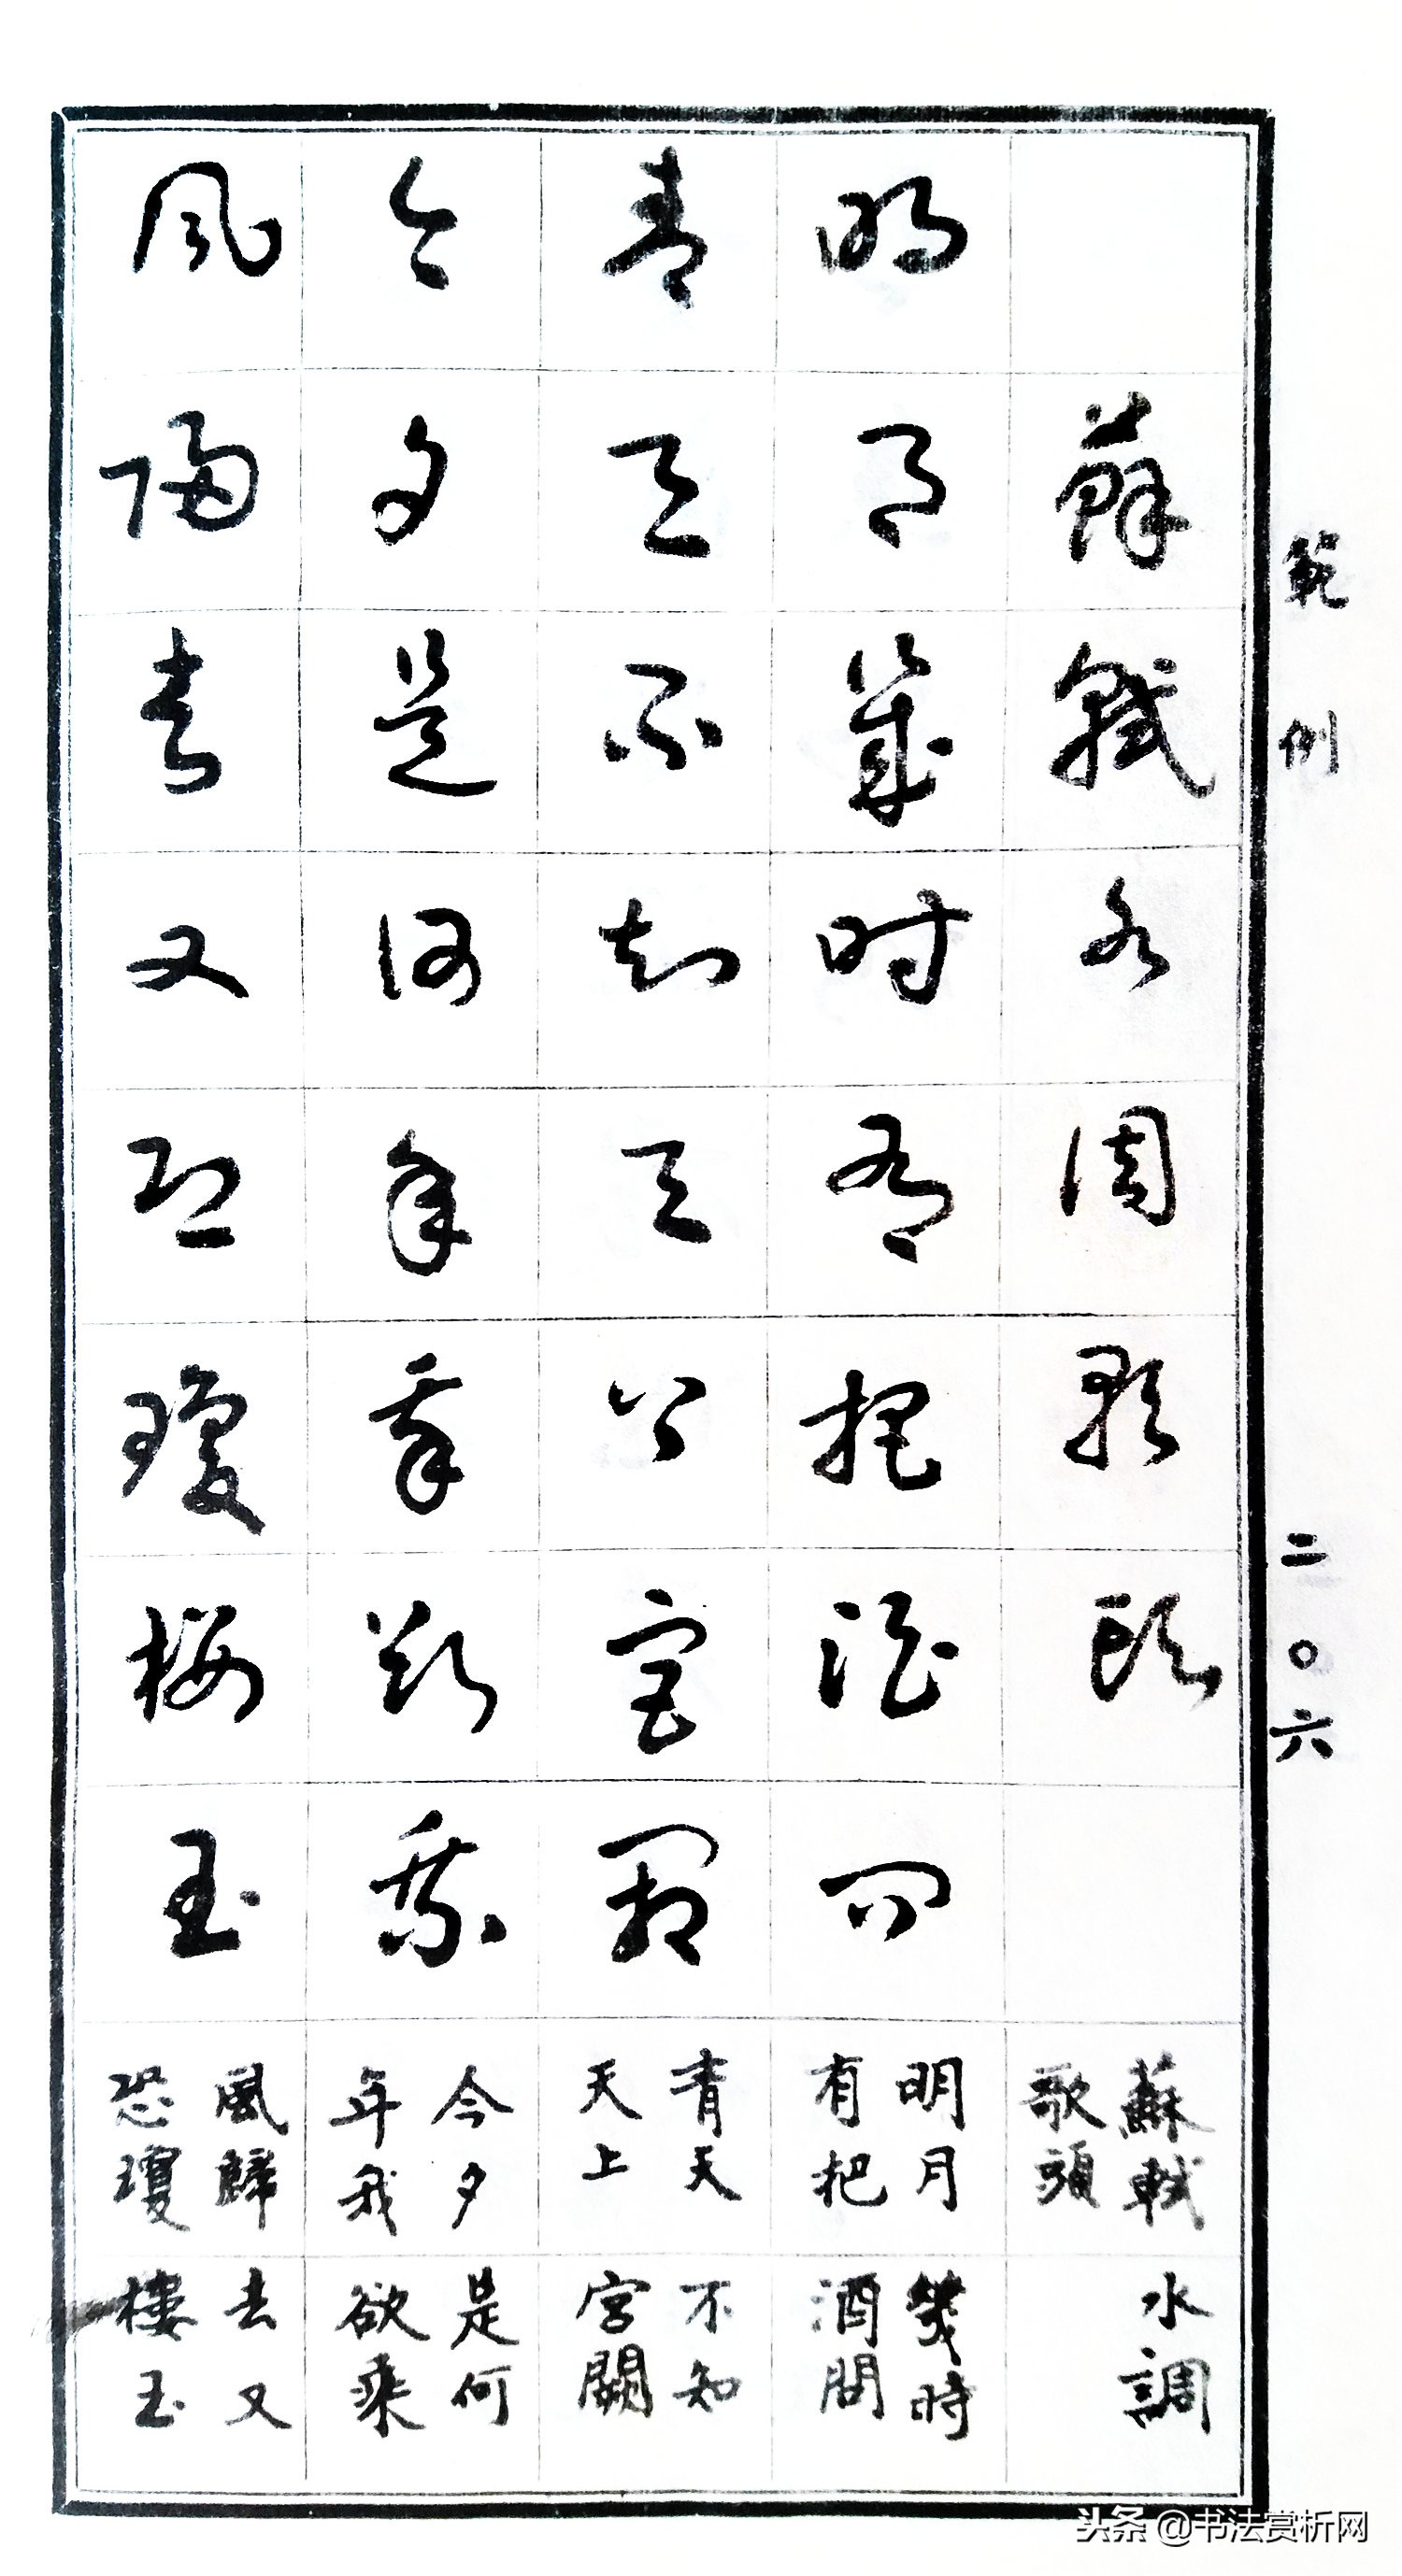 範例
二〇六
蘇軾水調歌頭
蘇軾水調
歌頭
明月幾時有把酒問
明月幾時
有把酒問
青天不知天上宮闕
青天不知
天上宮闕
今夕是何年我欲乘
今夕是何
年我欲乘
風歸去又恐瓊樓玉
風歸去又
恐瓊樓玉
头条 @书法赏析网